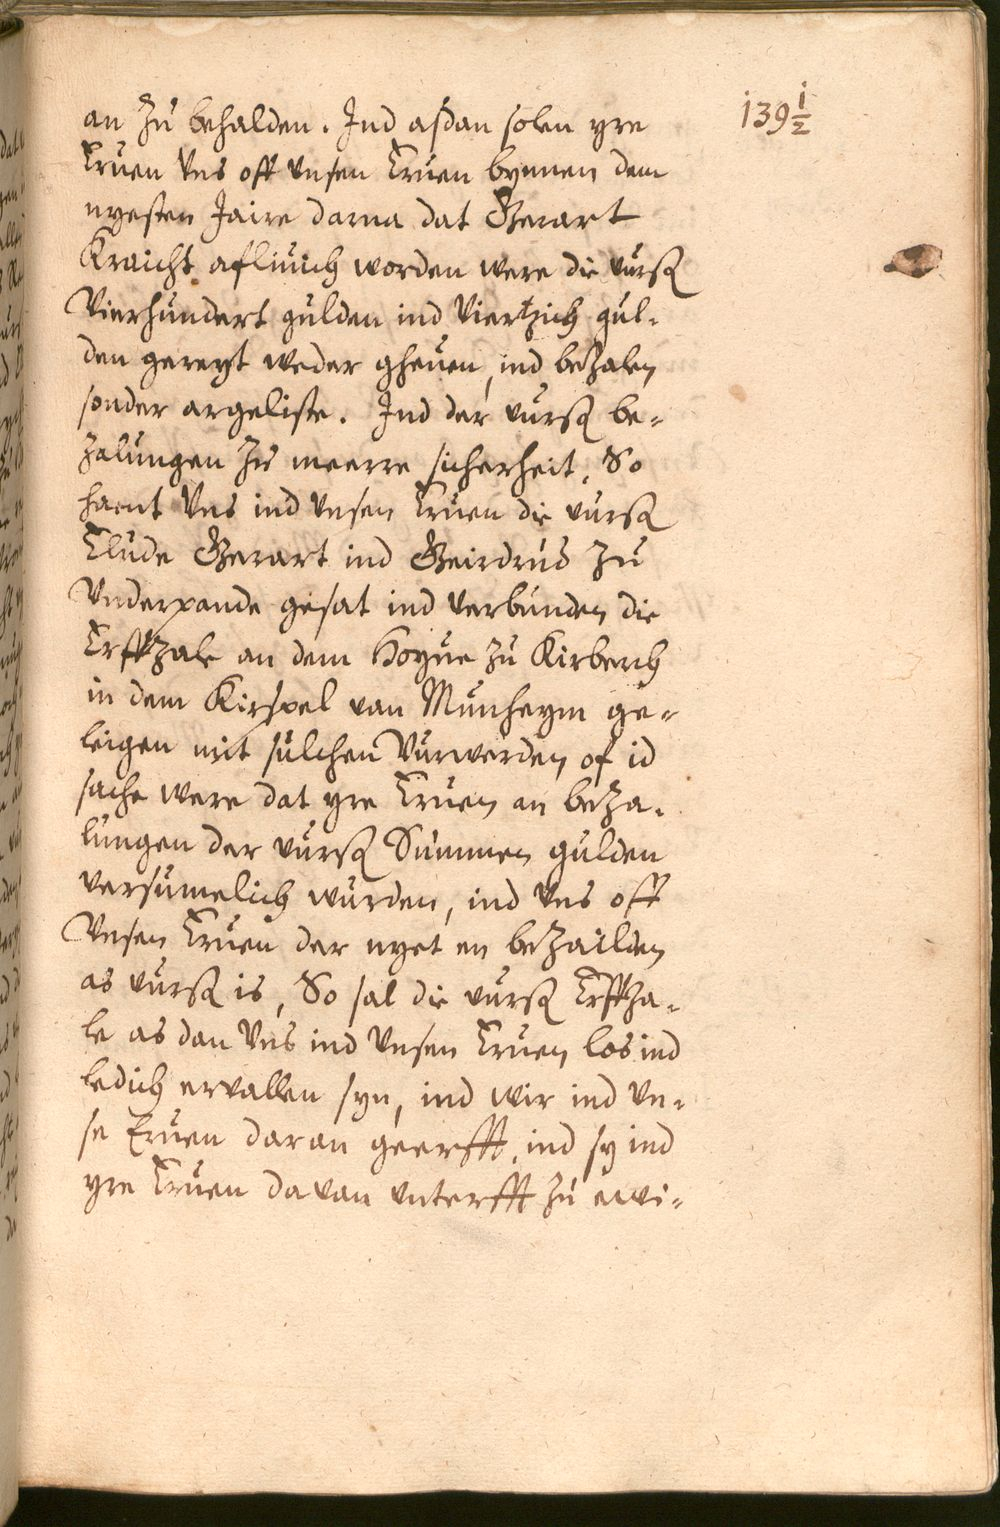 139 1/2
an zu behalden. Ind asdan solen yre
Eruen vns off vnsen Eruen bynnen dem
nyesten Jaire darna dat Gerart
Kraicht afliuich worden were die vurß
Vierhundert gulden ind Viertzich gul-
den gereyt weder gheuen, ind bezalen
sonder argeliste. Ind der vurß be-
zalungen zu meerre sicherheit, So
haent Vns ind vnsen Eruen die vurß
Elude Gerart ind Geirdrud zu
Vnderpande gesat ind verbunden die
Erffzale an dem Hoyue zu Kirberch
in dem Kirspel van Munheym ge-
leigen mit sulchen Vurwerden of id
sache were dat yre Eruen an beza-
lungen der vurß Summen gulden
versumelich wurden, ind vns off
Vnsen Eruen der nyet en bezailden
as vurß is, So sal die vurß Erffza-
le as dan Vns ind vnsen Eruen los ind
ledich ervallen syn, ind wir ind vn-
se Eruen daran geerfft, ind sy ind
yre Eruen davan vnterfft zu ewi-